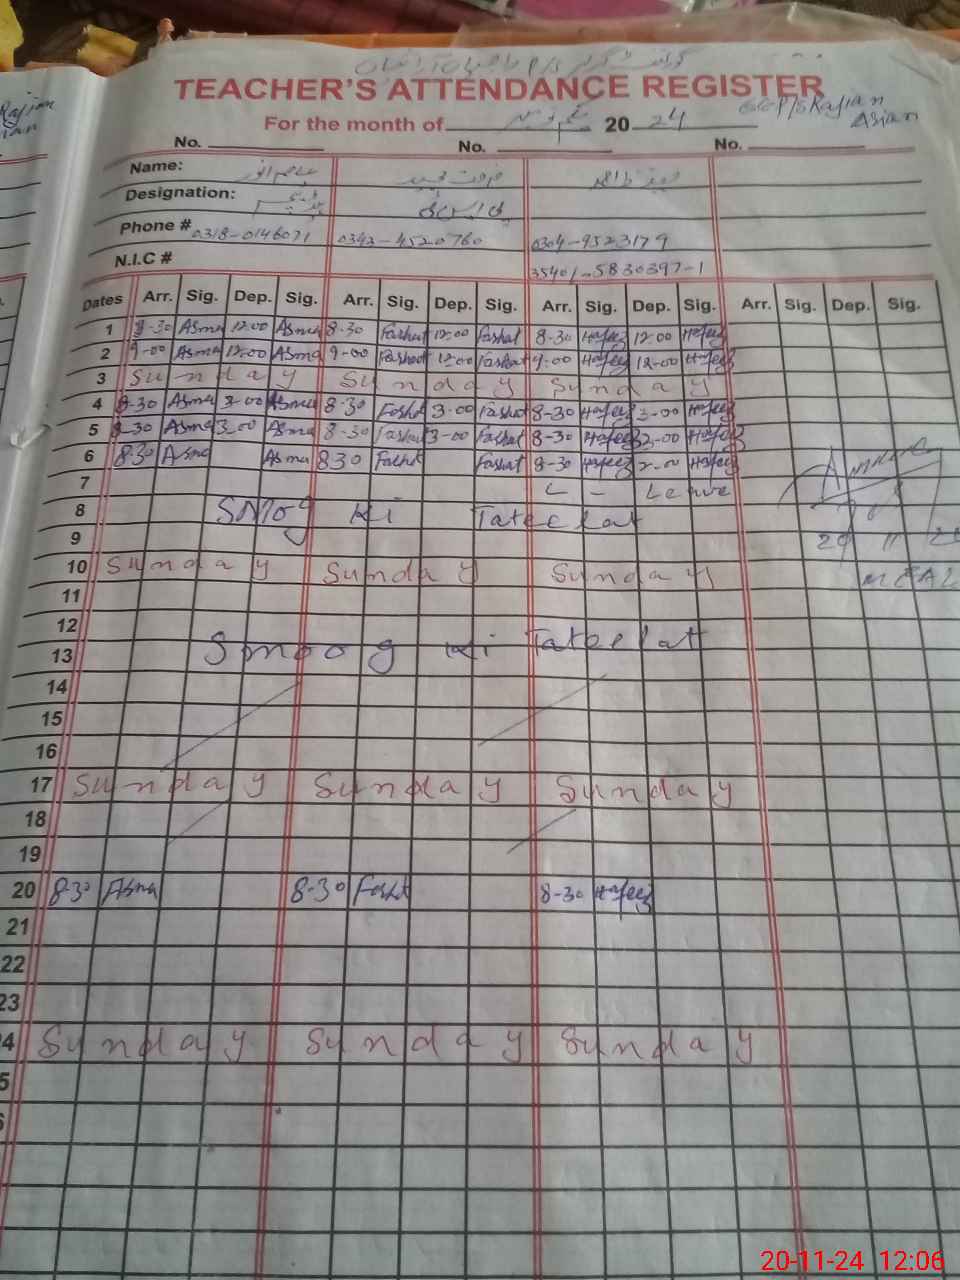 Rajian
گورنمنٹ گرلز P/S راجیاں
TEACHER'S ATTENDANCE REGISTER
GGP/S Rajian
Asian
For the month of نومبر 20 24
No. No. No.
Name:
Designation:
Phone # 0318-0146071 0343-4520760 0304-9523179
N.I.C # 35401-5830397-1
Dates Arr. Sig. Dep. Sig. Arr. Sig. Dep. Sig. Arr. Sig. Dep. Sig. Arr. Sig. Dep. Sig.
1 8-30 Asma 12:00 Asma 8-30 Fashat 12:00 Fashat 8-30 Hafeez 12:00 Hafeez
2 9-00 Asma 12:00 Asma 9-00 Fashat 12:00 Fashat 9-00 Hafeez 12-00 Hafeez
3 Sunday Sunday Sunday
4 8-30 Asma 3-00 Asma 8-30 Fashat 3-00 Fashat 8-30 Hafeez 3-00 Hafeez
5 8-30 Asma 3-00 Asma 8-30 Fashat 3-00 Fashat 8-30 Hafeez 3-00 Hafeez
6 830 Asma Asma 830 Fashat Fashat 8-30 Hafeez 2-00 Hafeez
7 L - Leave
8 SMog Ki Tateelat
9 20 11
10 Sunday Sunday Sunday
11
12
13 Smoog Ki Tateelat
14
15
16
17 Sunday Sunday Sunday
18
19
20 8-30 Asma 8-30 Fashat 8-30 Hafeez
21
22
23
4 Sunday Sunday Sunday
5
20-11-24 12:06